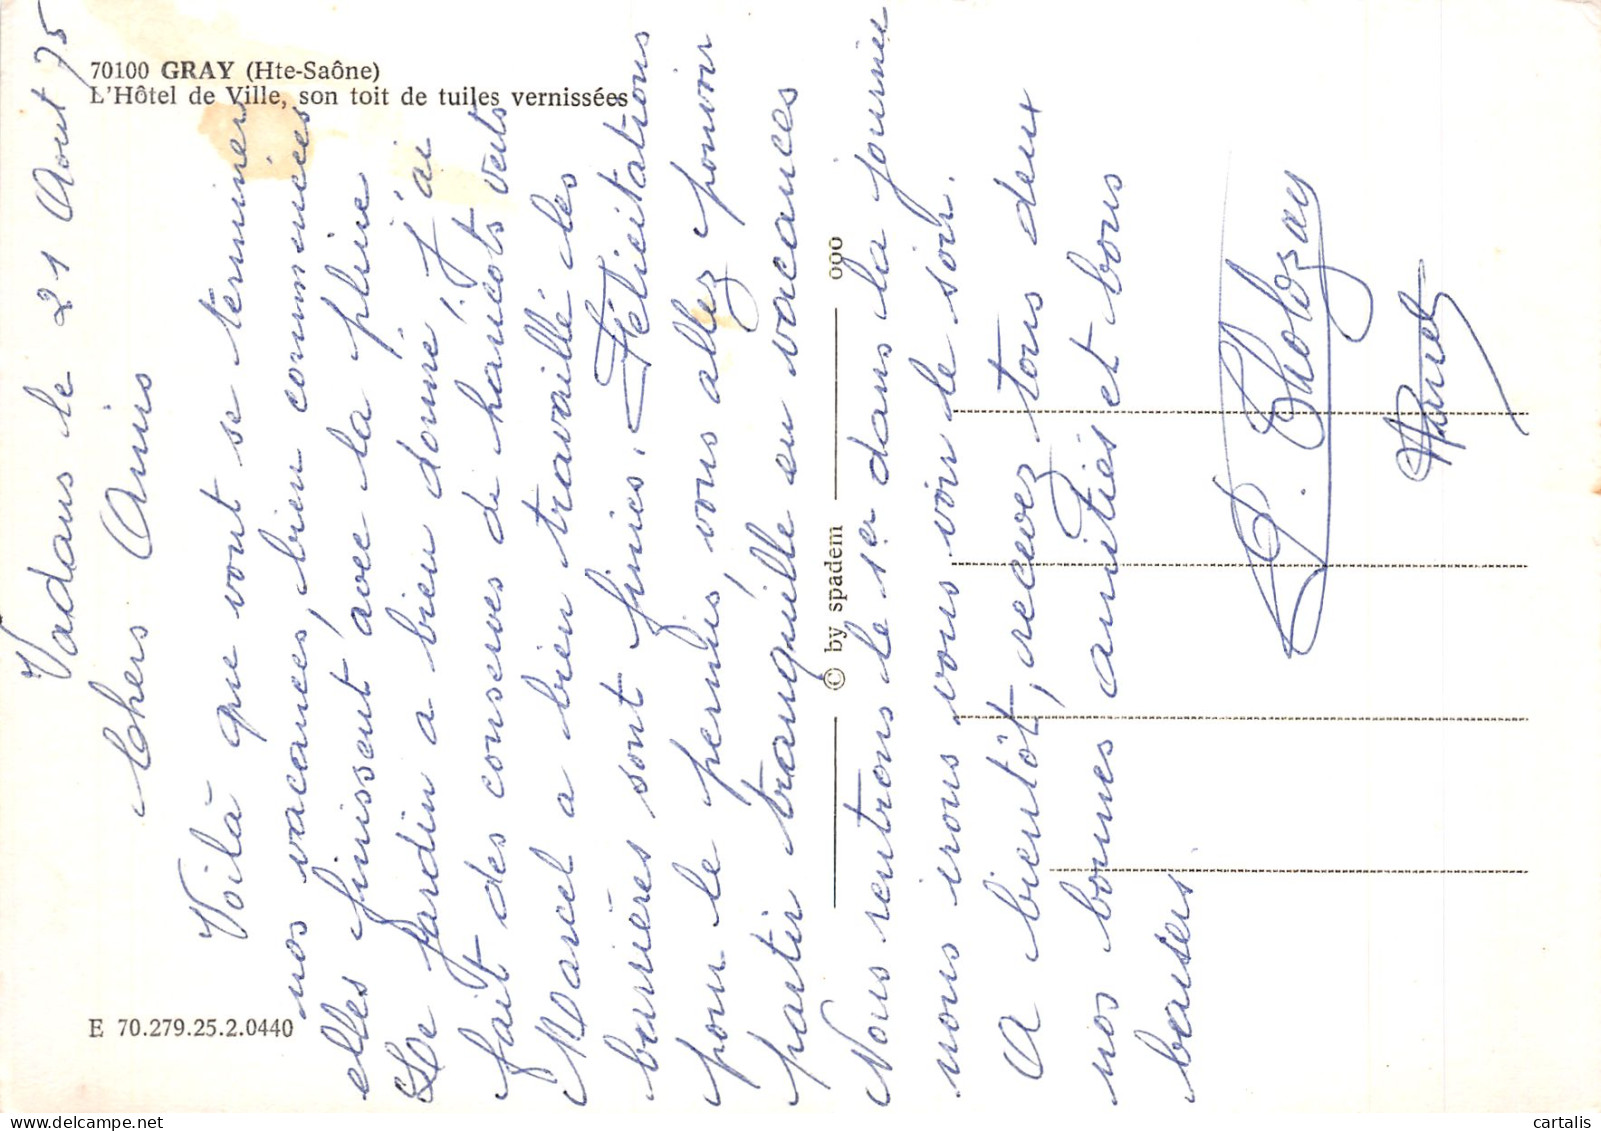 70100 GRAY (Hte-Saône)
L'Hôtel de Ville, son toit de tuiles vernissées
Vadans le 21 Aout 75
Chers Amis
Voilà que vont se terminer
nos vacances, bien commencées
elles finissent avec la pluie
Le jardin a bien donné, J'ai
fait des conserves de haricots verts
Marcel a bien travaillé les
barrières sont finies. Félicitations
pour le permis, vous allez pouvoir
partir tranquille en vacances
Nous rentrons le 1er dans la journée
nous irons vous voir le soir.
A bientôt, recevez tous deux
nos bonnes amitiés et bons
baisers
© by spadem
E 70.279.25.2.0440
cartalis